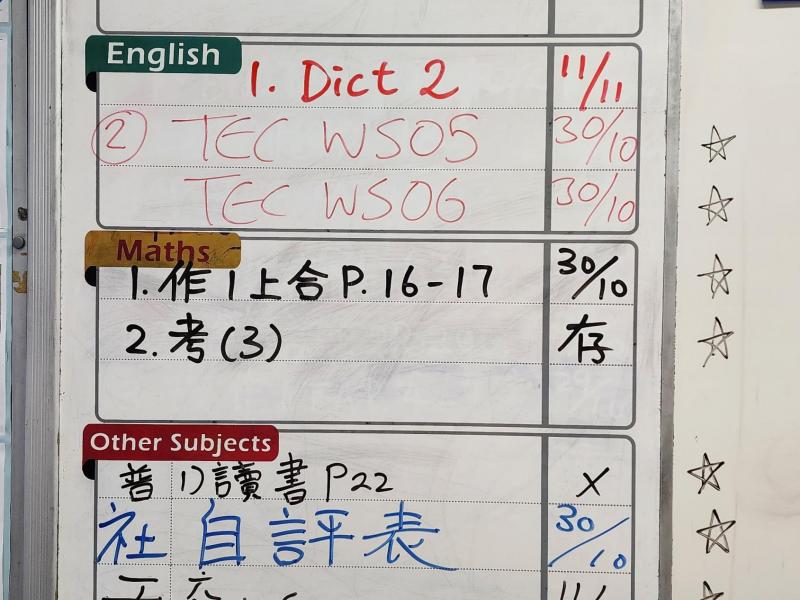 English
1. Dict 2 11/11
② TEC WS05 30/10
TEC WS06 30/10
Maths
1. 作1上合P. 16-17 30/10
2. 考(3) 存
Other Subjects
普 1)讀書 P22 X
社 自評表 30/10